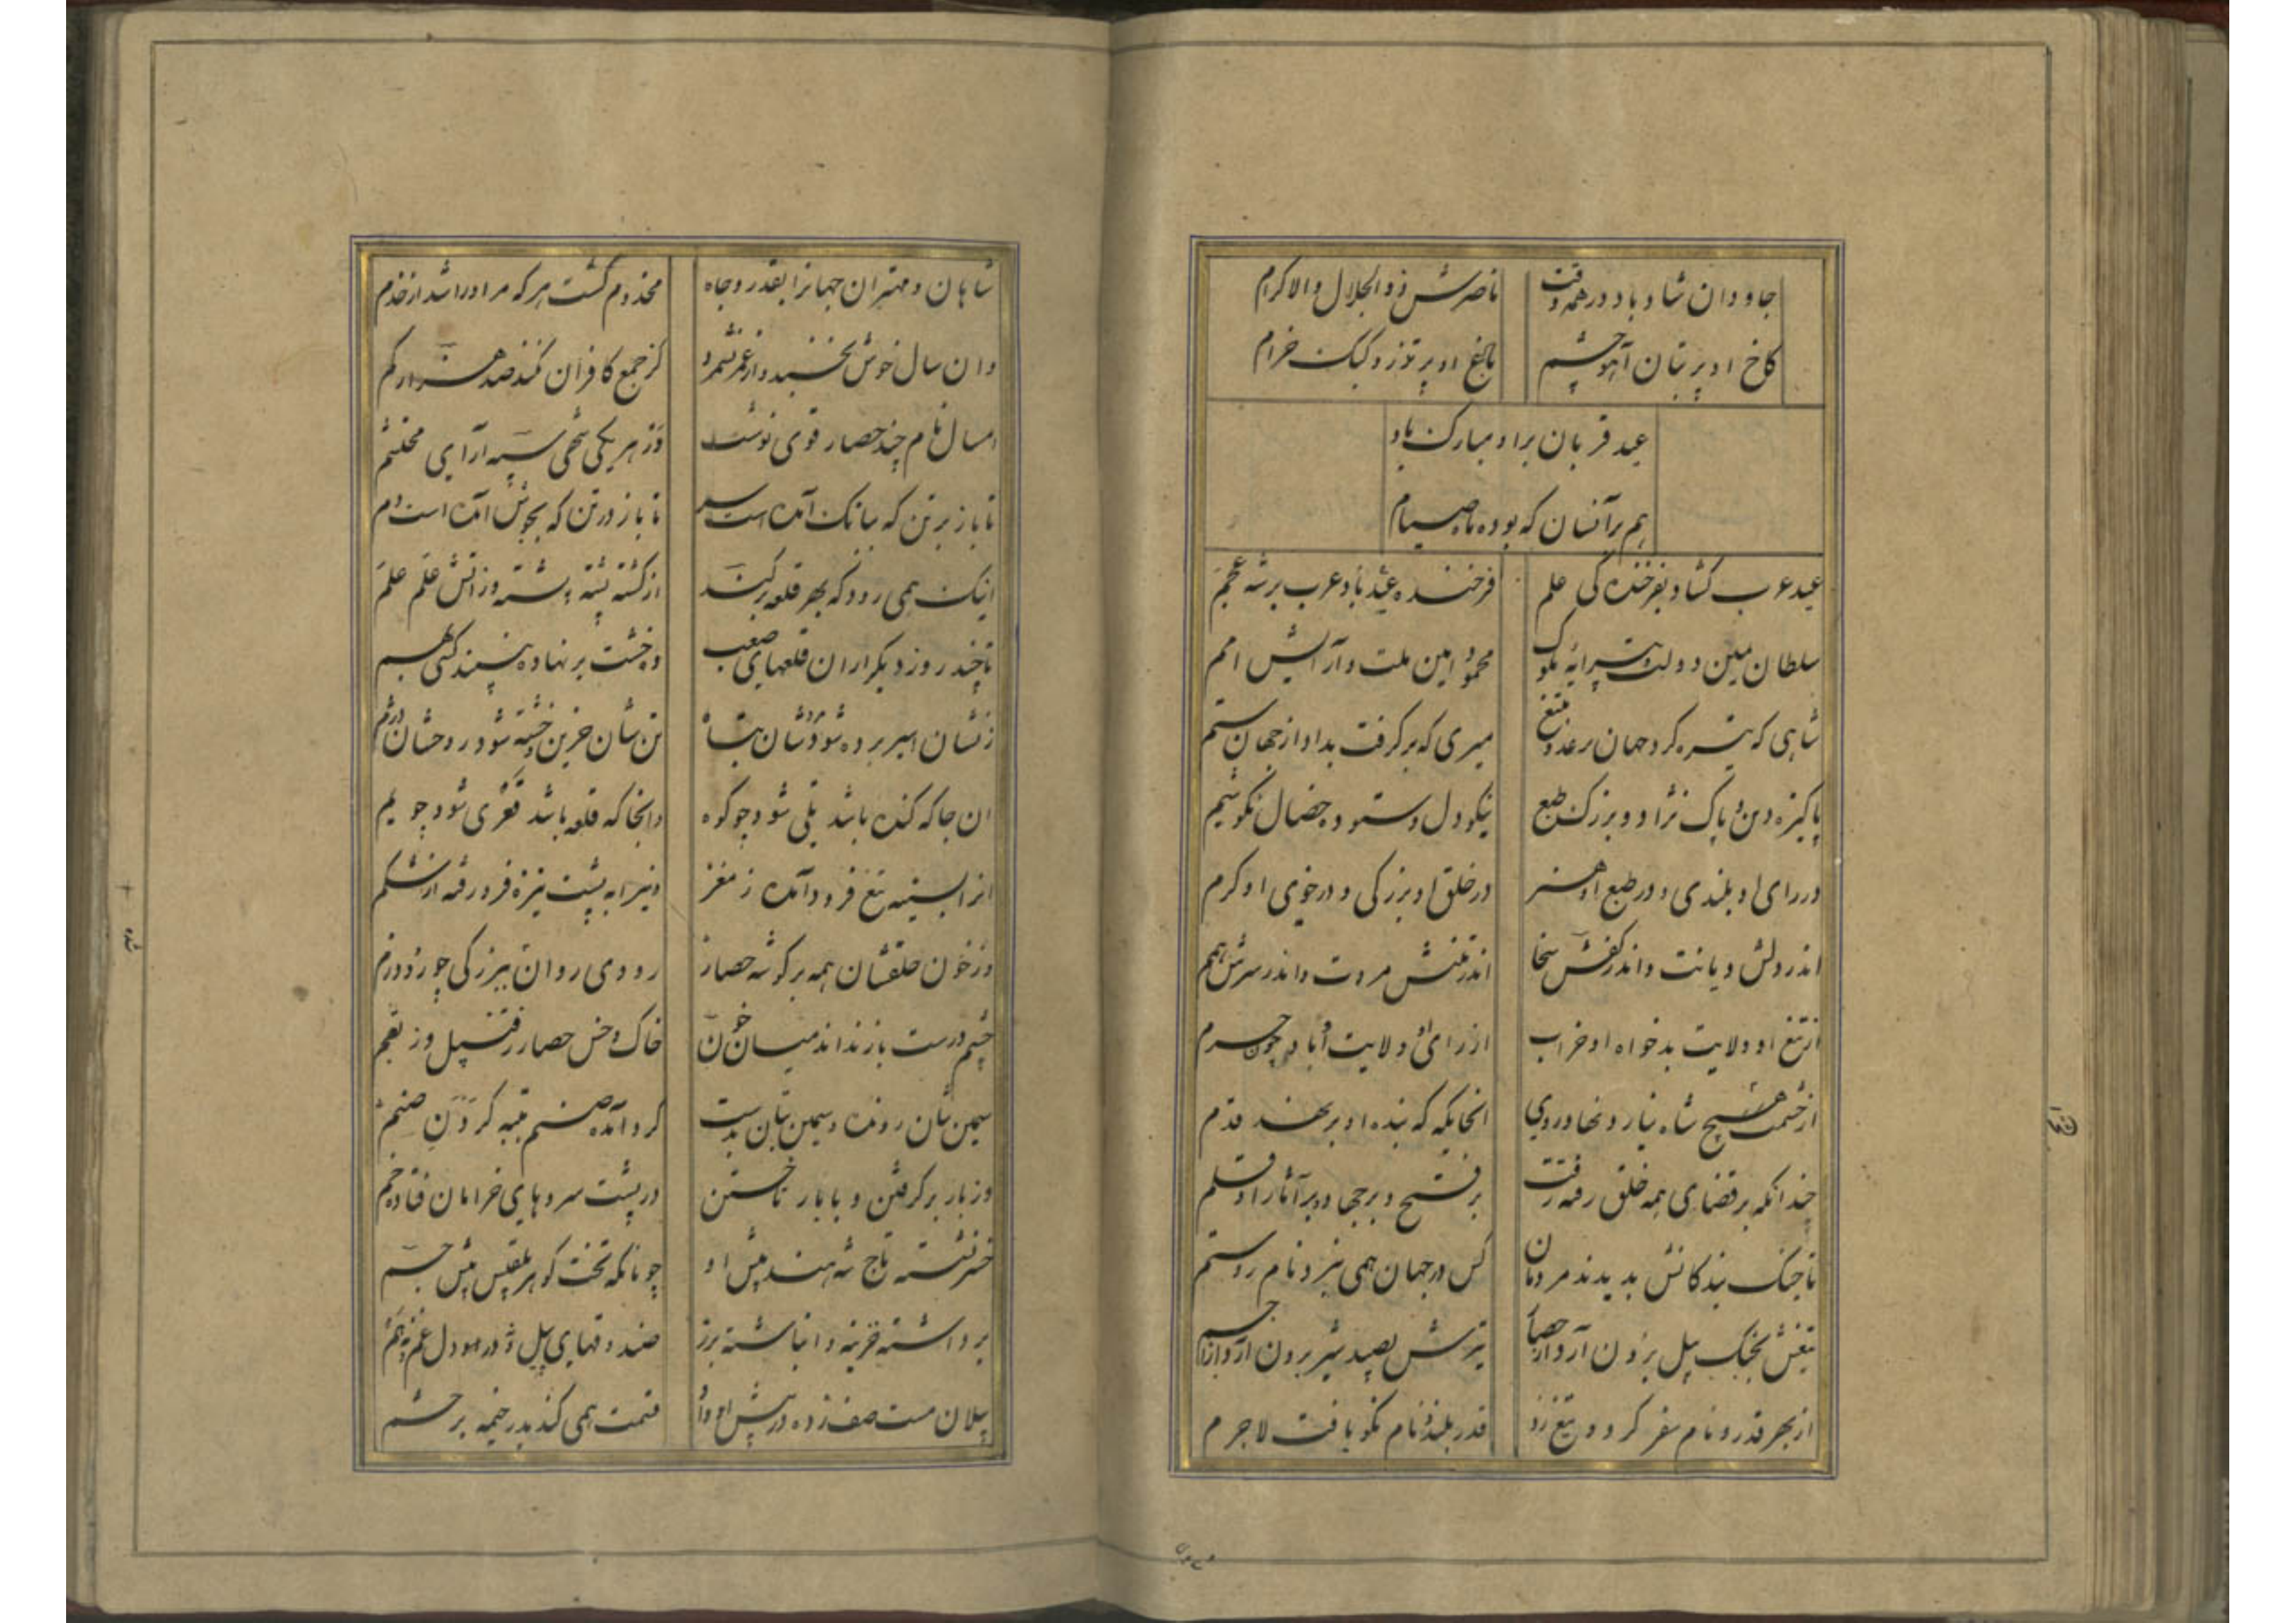 جاودان شاد باد در همه وقت ناصرش ذوالجلال والاکرام
کاخ او پر بتان آهو چشم باغ او پر تذرو کبک خرام
عید قربان براو مبارک باد
هم برآنسان که بوده ماه صیام
عید عرب گشاد بفرخندگی علم فرخنده عید باد عرب بر شه عجم
سلطان یمین دولت پیرایه ملوک محمود امین ملت و آرایش امم
شاهی که تیره کرد جهان بر عدو بتیغ میری که برگرفت بداد از جهان ستم
پاکیزه دین و پاک نژاد و بزرک طبع نیکو دل و ستوده خصال نکو شیم
در رای او بلندی و در طبع او هنر در خلق او بزرکی و در خوی او کرم
اندر دلش دیانت و اندر کفش سخا اندر تنش مروت و اندر سرش همم
از تیغ او ولایت بدخواه او خراب از رای او ولایت آباد چون حرم
از خشمت هیچ شاه نیارد نهاد روی انجایکه که بنده او برنهد قدم
چندانکه بر قضای همه خلق رفته رفت بر فتح و بر جهاد و بر آثار او قلم
تا جنک بندکانش بدیدند مردمان کس در جهان همی نبرد نام روستم
تیغش بجنک پیل برون آرد از حصار تیرش بصید شیر برون آرد از اجم
از بهر قدر و نام سفر کرد و تیغ زد قدر بلند و نام نکو یافت لاجرم
شاهان و مهتران جهانرا بقدر و جاه مخدوم گشت هر که مر او را شد از خدم
وان سال خوش نخسبد و از عمر نشمرد کز جمع کافران نکند صد هزار کم
امسال نام چند حصار قوی نوشت در هر یکی شهی سپه آرای محتشم
تا باز بر تن که سبانک آمده است سر تا باز در تن که بجوش آمده است دم
اینک همی رود که بهر قلعه برکند از کشته پشته پشته وز اتش علم علم
تا چند روز دیکر از ان قلعهای صعب ده خشت بر نهاده نبینند کس بهم
زنشان اسیر برده شود مردشان تباه تن شان حزین خسته شود روحشان دژم
ان جا که کنده باشد تلی شود چو کوه وانجا که قلعه باشد قعری شود چو یم
انرا بسینه تیغ فرود آمده ز مغز وینرا به پشت نیزه فرو رفته از شکم
وز خون حلقشان همه بر کوشه حصار رودی روان ببزرکی چو رود زم
چشم درست باز نداند میان خون خاک و خس حصار ز رفتنپیل وز بقم
سیمین تنان رونده و سیمین بتان بدست کرد آمده صنم بتبه کردن صنم
وز بار برکرفتن و با بار تاختن در پشت سروهای خرامان فتاده خم
خرنشته تاج شه هند پیش او چونانکه تخت کوهر بلقیس پیش جم
برداشته خزینه و انباشته بزر صندوقهای پیل
پیلان مست صف زده در پیش او و او قسمت همی کند بدر خیمه بر حشم